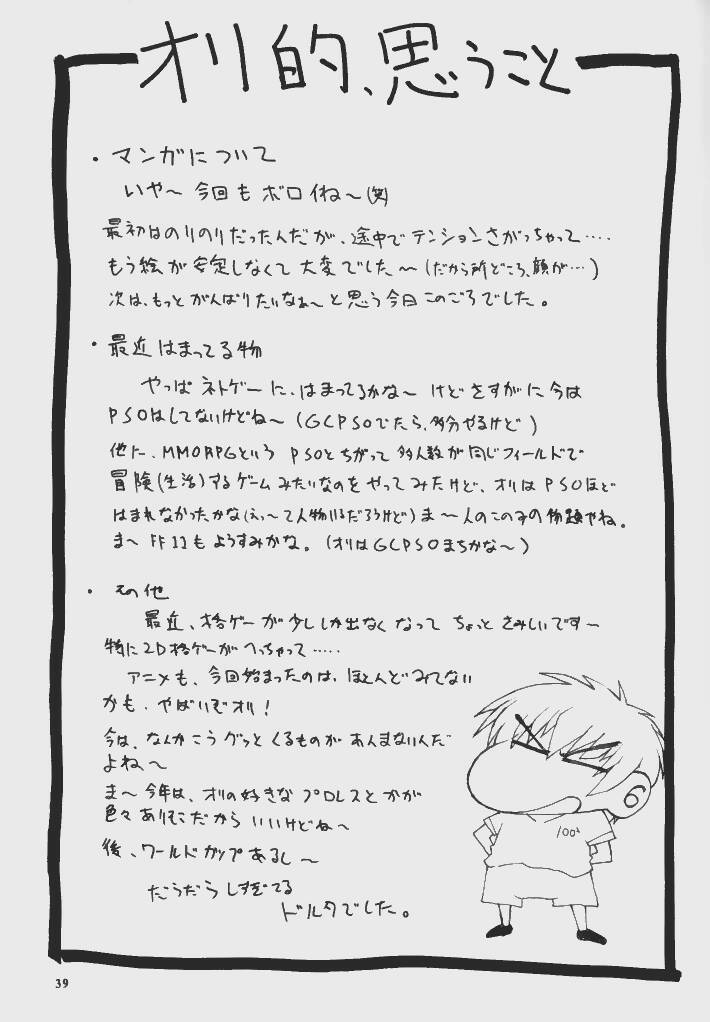 オリ的、思うこと
・マンガについて
いや～今回もボロイね～(笑)
最初はのりのりだったんだが、途中でテンションさがっちゃって‥‥
もう絵が安定しなくて大変でした～(だから所どころ、顔が…)
次は、もっとがんばりたいなぁ～と思う今日このごろでした。
・最近はまってる物
やっぱネトゲーに、はまってるかな～けどさすがに今は
PSOはしてないけどね～(GCPSOでたら、多分やるけど)
他に、MMORPGというPSOとちがって多人数が同じフィールドで
冒険(生活)するゲームみたいなのをやってみたけど、オリはPSOほど
はまれなかったかな(えっ～て人物いるだろうけど)ま～人のこのみの問題やね。
ま～FF11もようすみかな。(オリはGCPSOまちかな～)
・その他
最近、格ゲーが少ししか出なくなってちょっとさみしいです～
特に2D格ゲーがへっちゃって‥‥‥
アニメも、今回始まったのは、ほとんどみてない
かも、やばいぞオリ!
今は、なんかこうグッとくるものがあんまないんだ
よね～
ま～今年は、オリの好きなプロレスとかが
色々ありそこだからいいけどね～
後、ワールドカップあるし～
だらだらしすぎてる
ドルタでした。
39